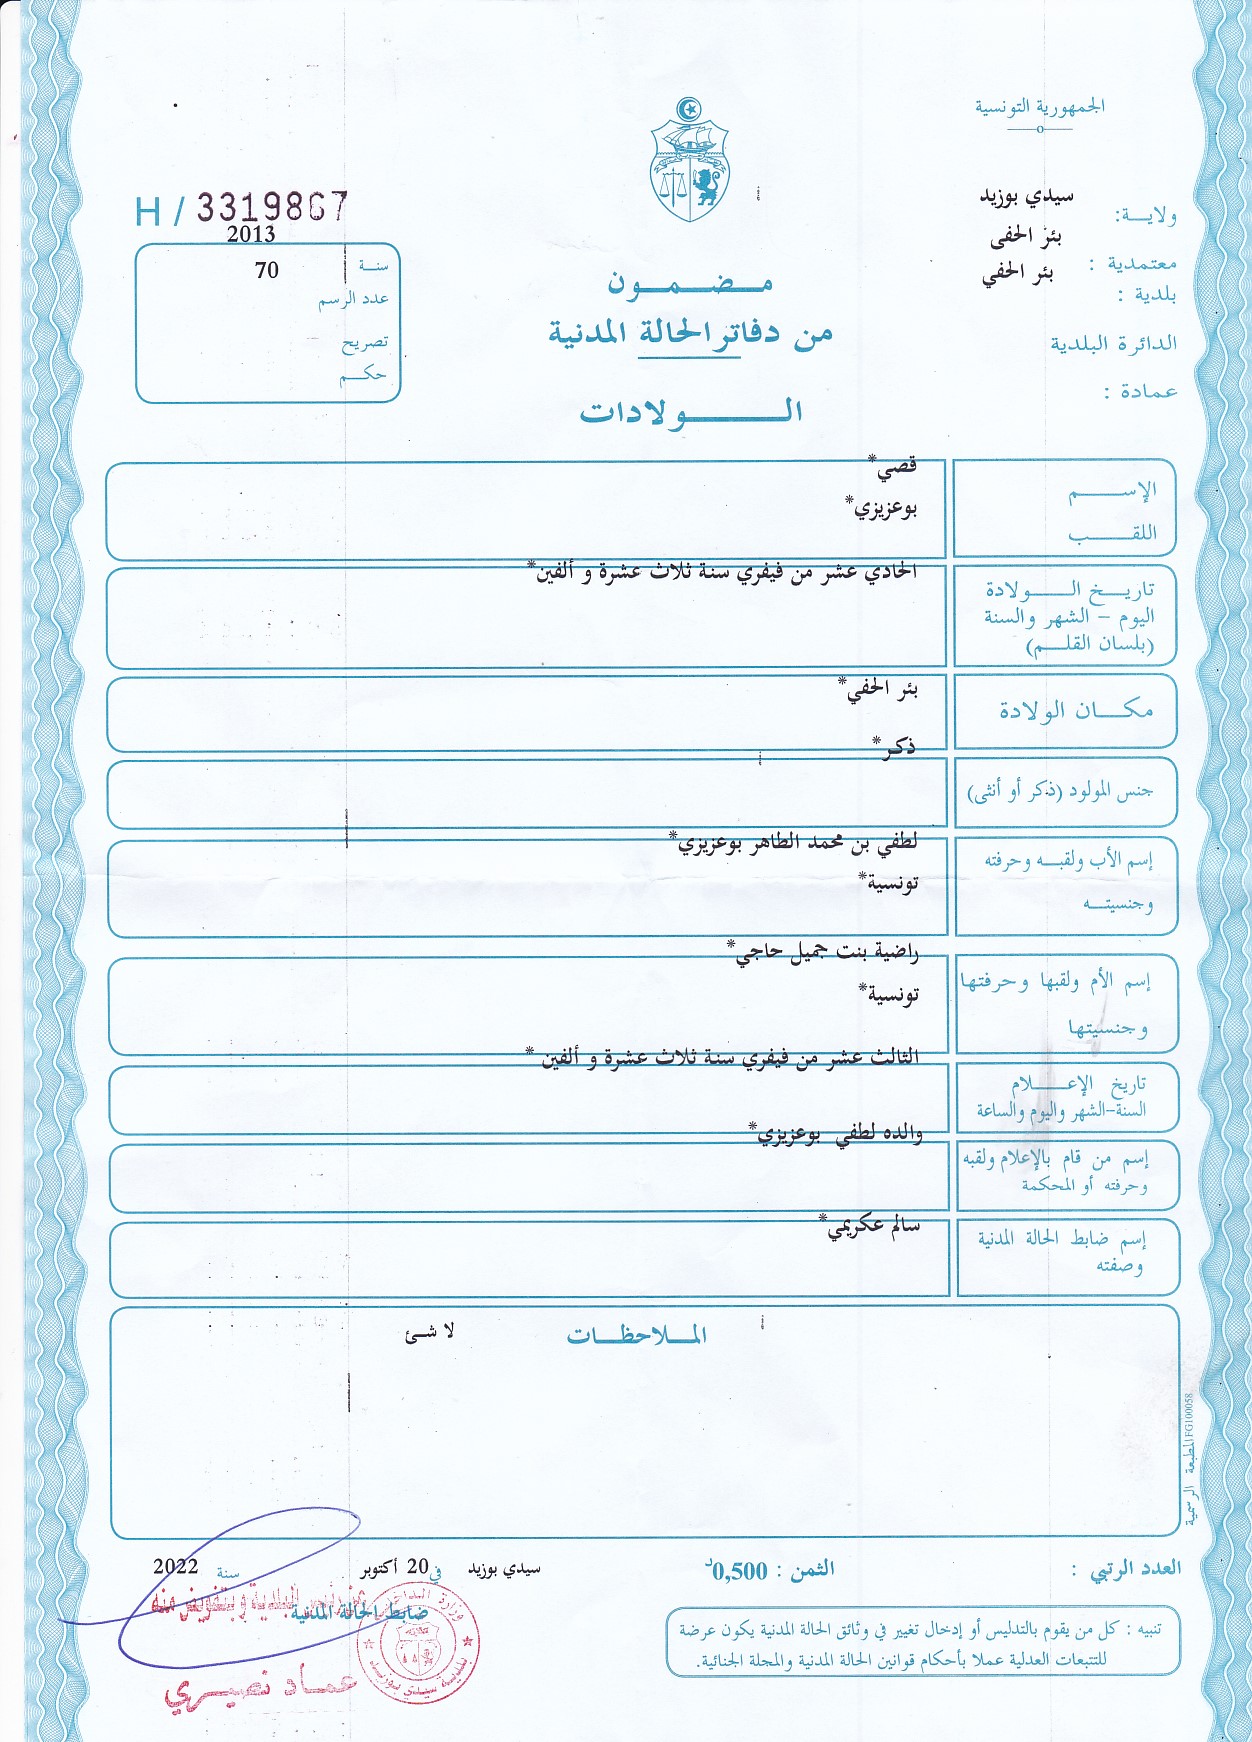 الجمهورية التونسية
ولاية: سيدي بوزيد
معتمدية : بئر الحفى
بلدية : بئر الحفي
الدائرة البلدية
عمادة :
H / 3319867
2013
سنة 70
عدد الرسم
تصريح
حكم
مضمون
من دفاتر الحالة المدنية
الولادات
الإسم قصي*
اللقب بوعزيزي*
تاريخ الولادة الحادي عشر من فيفري سنة ثلاث عشرة و ألفين*
اليوم - الشهر والسنة
(بلسان القلم)
مكان الولادة بئر الحفي*
ذكر*
جنس المولود (ذكر أو أنثى)
إسم الأب ولقبه وحرفته لطفي بن محمد الطاهر بوعزيزي*
وجنسيته تونسية*
إسم الأم ولقبها وحرفتها راضية بنت جميل حاجي*
وجنسيتها تونسية*
تاريخ الإعلام الثالث عشر من فيفري سنة ثلاث عشرة و ألفين *
السنة-الشهر واليوم والساعة
إسم من قام بالإعلام ولقبه والده لطفي بوعزيزي*
وحرفته أو المحكمة
إسم ضابط الحالة المدنية سالم عكريمي*
وصفته
الملاحظات لا شئ
المطبعة الرسمية FG100058
العدد الرتبي :
الثمن : 0,500د
سيدي بوزيد في 20 أكتوبر سنة 2022
ضابط الحالة المدنية :
عن رئيس البلدية وبتفويض منه
وزارة الداخلية
بلدية سيدي بوزيد
عماد نصيري
تنبيه : كل من يقوم بالتدليس أو إدخال تغيير في وثائق الحالة المدنية يكون عرضة
للتتبعات العدلية عملا بأحكام قوانين الحالة المدنية والمجلة الجنائية.